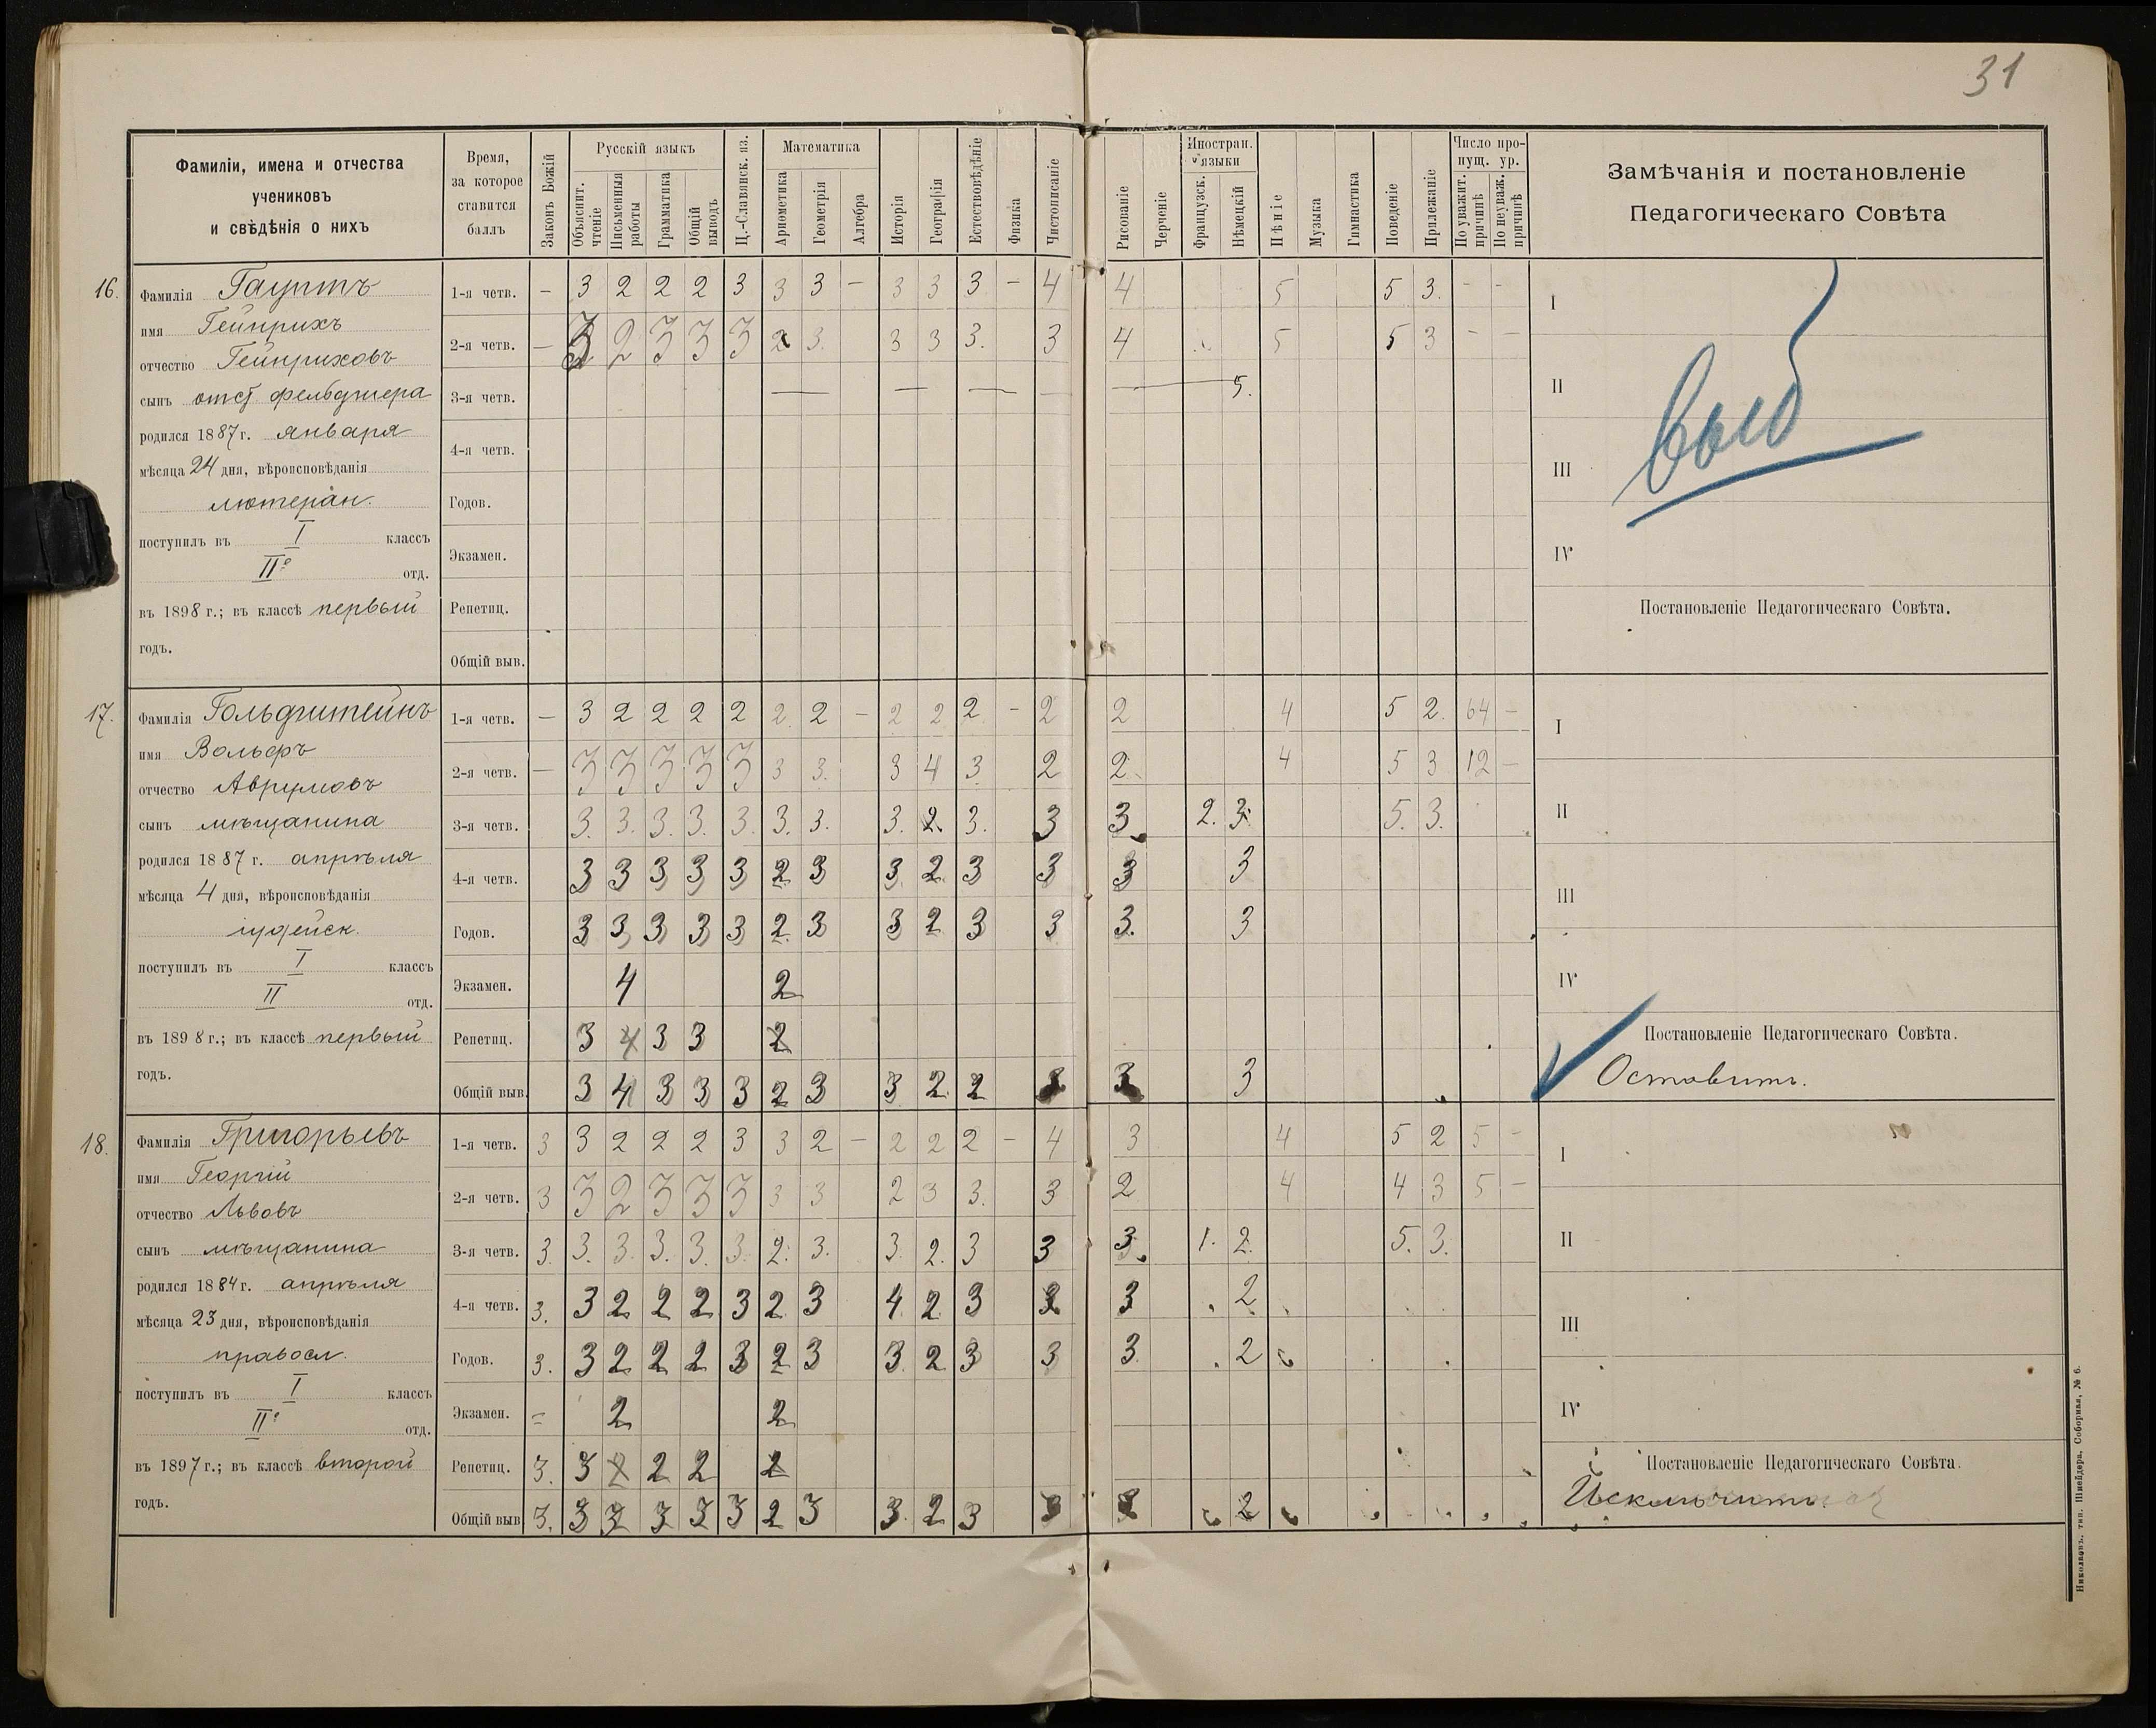 31
Фамиліи, имена и отчества
учениковъ
и свѣдѣнія о нихъ
Время,
за которое
ставится
баллъ
Законъ Божій
Русскій языкъ
Объяснит. чтеніе
Письменныя работы
Грамматика
Общій выводъ
Ц.-Славянск. яз.
Математика
Ариѳметика
Геометрія
Алгебра
Исторія
Географія
Естествовѣдѣніе
Физика
Чистописаніе
Рисованіе
Черченіе
Иностран. языки
Французск.
Нѣмецкій
Пѣніе
Музыка
Гимнастика
Поведеніе
Прилежаніе
Число пропущ. ур.
По уважит. причинѣ
По неуваж. причинѣ
Замѣчанія и постановленіе
Педагогическаго Совѣта
16.
Фамилія Гауптъ
имя Гейнрихъ
отчество Гейнриховъ
сынъ отст. фельдшера
родился 1887 г. января
мѣсяца 24 дня, вѣроисповѣданія
лютеран.
поступилъ въ I классъ
IIе отд.
въ 1898 г.; въ классѣ первый
годъ.
1-я четв. – 3 2 2 2 3 3 3 – 3 3 3 – 4 4 5 5 3. – –
2-я четв. – 3 2 3 3 3 2 3. 3 3 3. 3 4 5 5 3 – –
3-я четв. — — — — 5.
4-я четв.
Годов.
Экзамен.
Репетиц.
Общій выв.
I
II
III
IV
выб
Постановленіе Педагогическаго Совѣта.
17.
Фамилія Гольдштейнъ
имя Вольфъ
отчество Аврумовъ
сынъ мѣщанина
родился 1887 г. апрѣля
мѣсяца 4 дня, вѣроисповѣданія
іудейск.
поступилъ въ I классъ
II отд.
въ 1898 г.; въ классѣ первый
годъ.
1-я четв. – 3 2 2 2 2 2 2 – 2 2 2 – 2 2 4 5 2. 64 –
2-я четв. – 3 3 3 3 3 3 3. 3 4 3 2 2 4 5 3 12 –
3-я четв. 3. 3. 3. 3. 3. 3. 3. 3. 2. 3. 3 3 2. 3. 5. 3.
4-я четв. 3 3 3 3 3 2 3 3. 2. 3 3 3 3
Годов. 3 3 3 3 3 2. 3 3 2 3 3 3. 3
Экзамен. 4 2
Репетиц. 3 4 3 3 2
Общій выв. 3 4 3 3 3 2 3 3 2. 2 3 3 3
I
II
III
IV
Постановленіе Педагогическаго Совѣта.
Оставить.
18.
Фамилія Григорьевъ
имя Георгій
отчество Львовъ
сынъ мѣщанина
родился 1884 г. апрѣля
мѣсяца 23 дня, вѣроисповѣданія
правосл.
поступилъ въ I классъ
IIе отд.
въ 1897 г.; въ классѣ второй
годъ.
1-я четв. 3 3 2 2 2 3 3 2 – 2 2 2 – 4 3 4 5 2 5 –
2-я четв. 3 3 2 3 3 3 3 3 2 3 3. 3 2 4 4 3 5 –
3-я четв. 3. 3. 3. 3. 3. 3. 2. 3. 3. 2. 3 3 3. 1. 2. 5. 3.
4-я четв. 3. 3 2 2 2 3 2 3 4. 2. 3 3 2
Годов. 3. 3 2 2 2 3 2 3 3. 2 3 3 3. 2
Экзамен. = 2 2
Репетиц. 3. 3 2 2 2 2
Общій выв 3. 3 3 3 3 3 2 3 3. 2 3 3 3 2
I
II
III
IV
Постановленіе Педагогическаго Совѣта.
Исключить.
Николаевъ. тип. Шнейдера, Соборная, № 6.